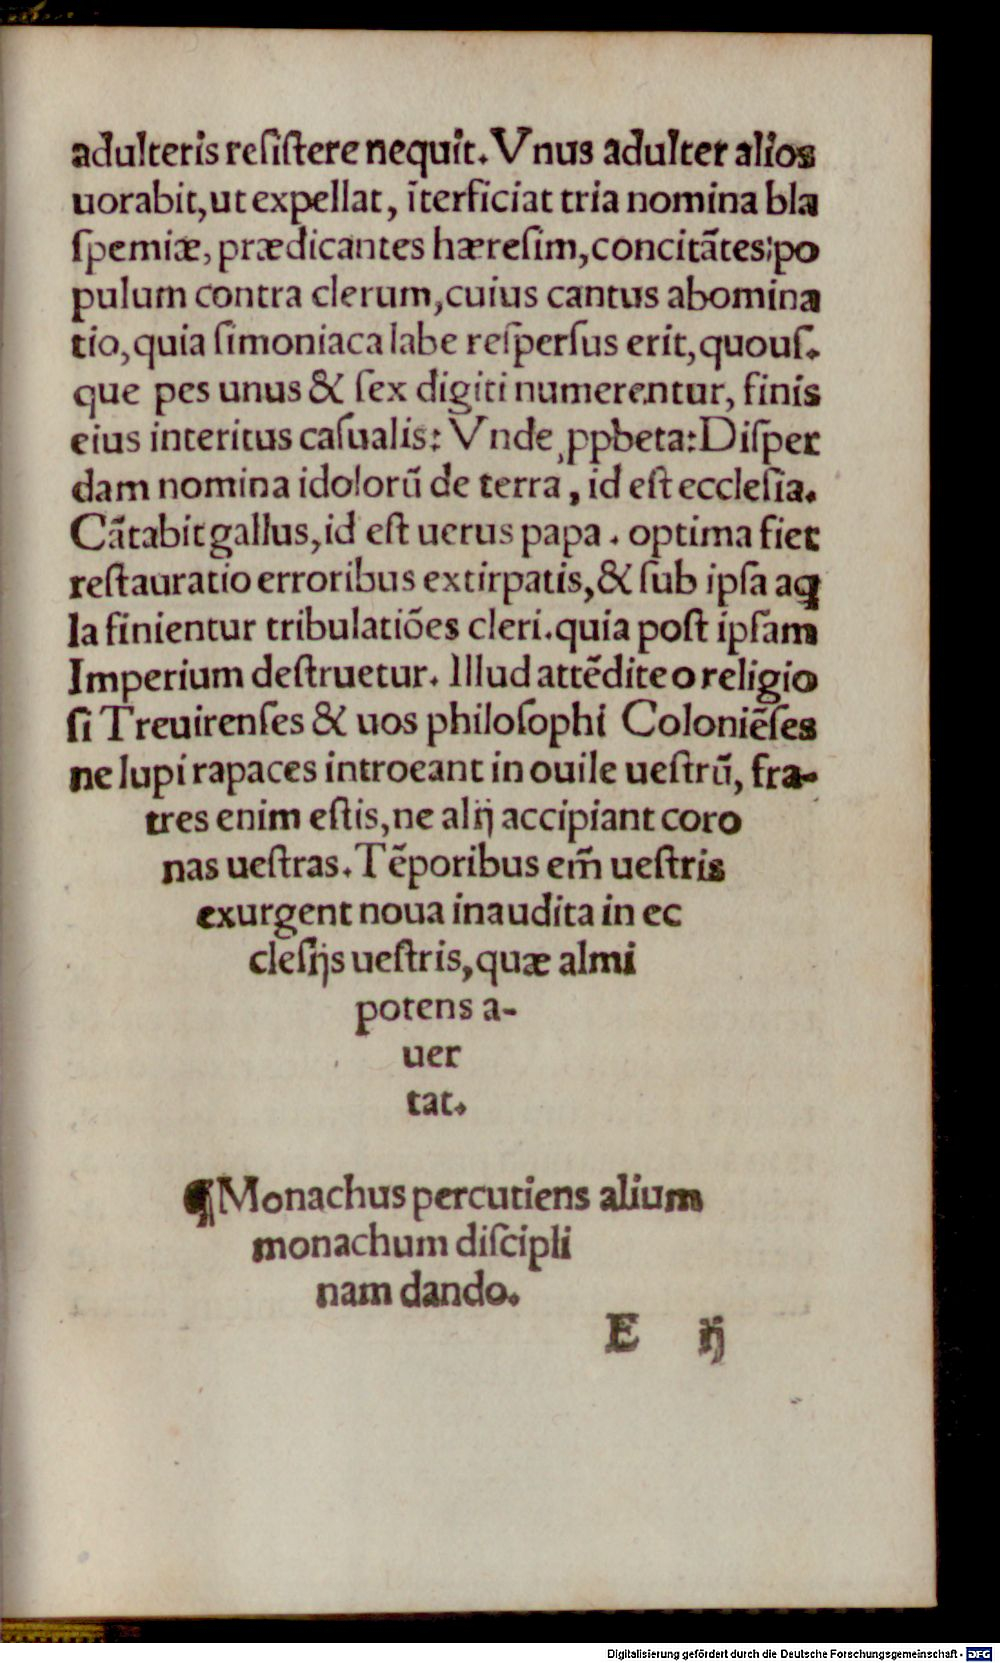 adulteris reſiſtere nequit. Vnus adulter alios
uorabit, ut expellat, ĩterficiat tria nomina bla
ſpemiæ, prædicantes hæreſim, concitãtes; po
pulum contra clerum, cuius cantus abomina
tio, quia ſimoniaca labe reſperſus erit, quouſ.
que pes unus & ſex digiti numerentur, finis
eius interitus caſualis: Vnde ꝓpbeta: Diſper
dam nomina idolorũ de terra, id eſt eccleſia.
Cãtabit gallus, id eſt uerus papa. optima fiet
reſtauratio erroribus extirpatis, & ſub ipſa aꝗ
la finientur tribulatiões cleri. quia poſt ipſam
Imperium deſtruetur. Illud attẽdite o religio
ſi Treuirenſes & uos philoſophi Coloniẽſes
ne lupi rapaces introeant in ouile ueſtrũ, fra-
tres enim eſtis, ne alij accipiant coro
nas ueſtras. Tẽporibus em̃ ueſtris
exurgent noua inaudita in ec
cleſijs ueſtris, quæ almi
potens a-
uer
tat.
¶Monachus percutiens alium
monachum diſcipli
nam dando.
E ij
Digitalisierung gefördert durch die Deutsche Forschungsgemeinschaft - DFG